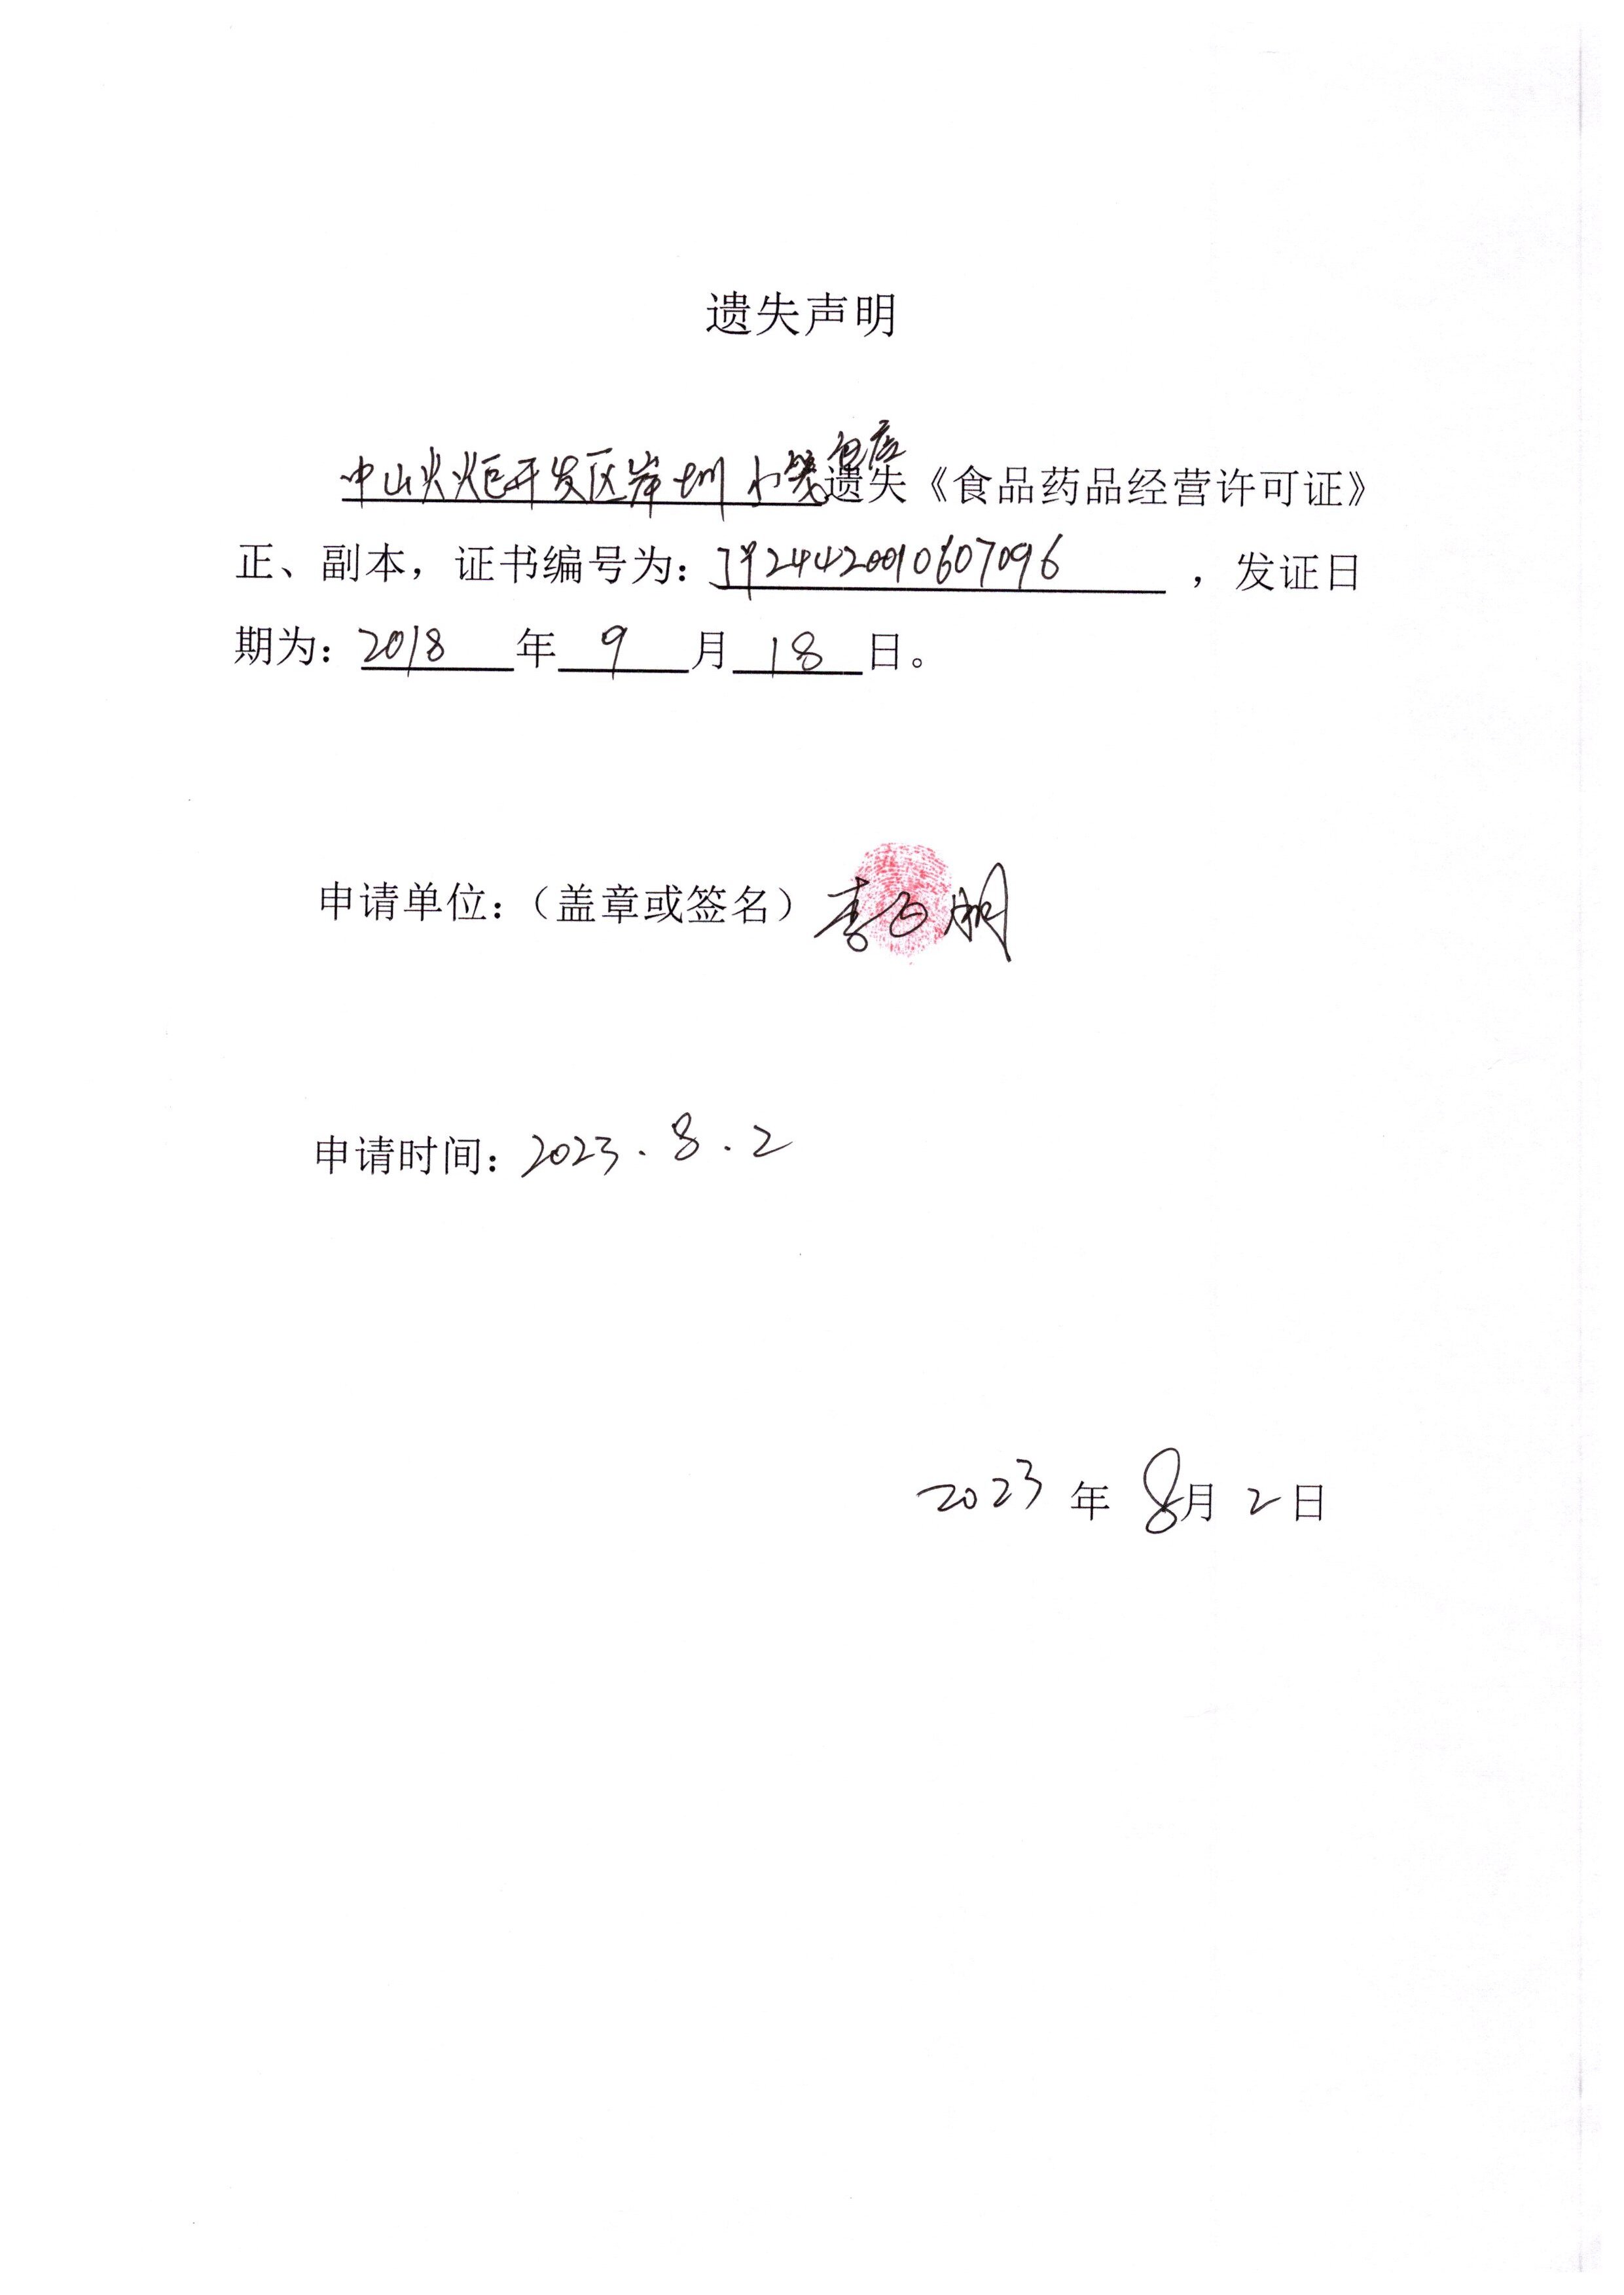 遗失声明
中山火炬开发区岸圳小笼包店遗失《食品药品经营许可证》
正、副本，证书编号为：JY24420010607096，发证日
期为：2018年9月18日。
申请单位：（盖章或签名）李 朋
申请时间：2023.8.2
2023年8月2日